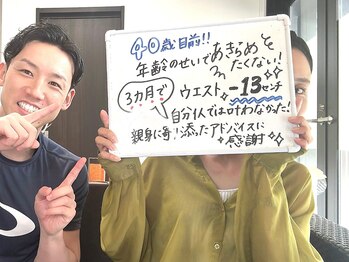 40歳目前!!
年齢のせいであきらめ
たくない!
3カ月で ウエスト -13センチ
自分1人では叶わなかった!
親身に寄り添ったアドバイスに
感謝